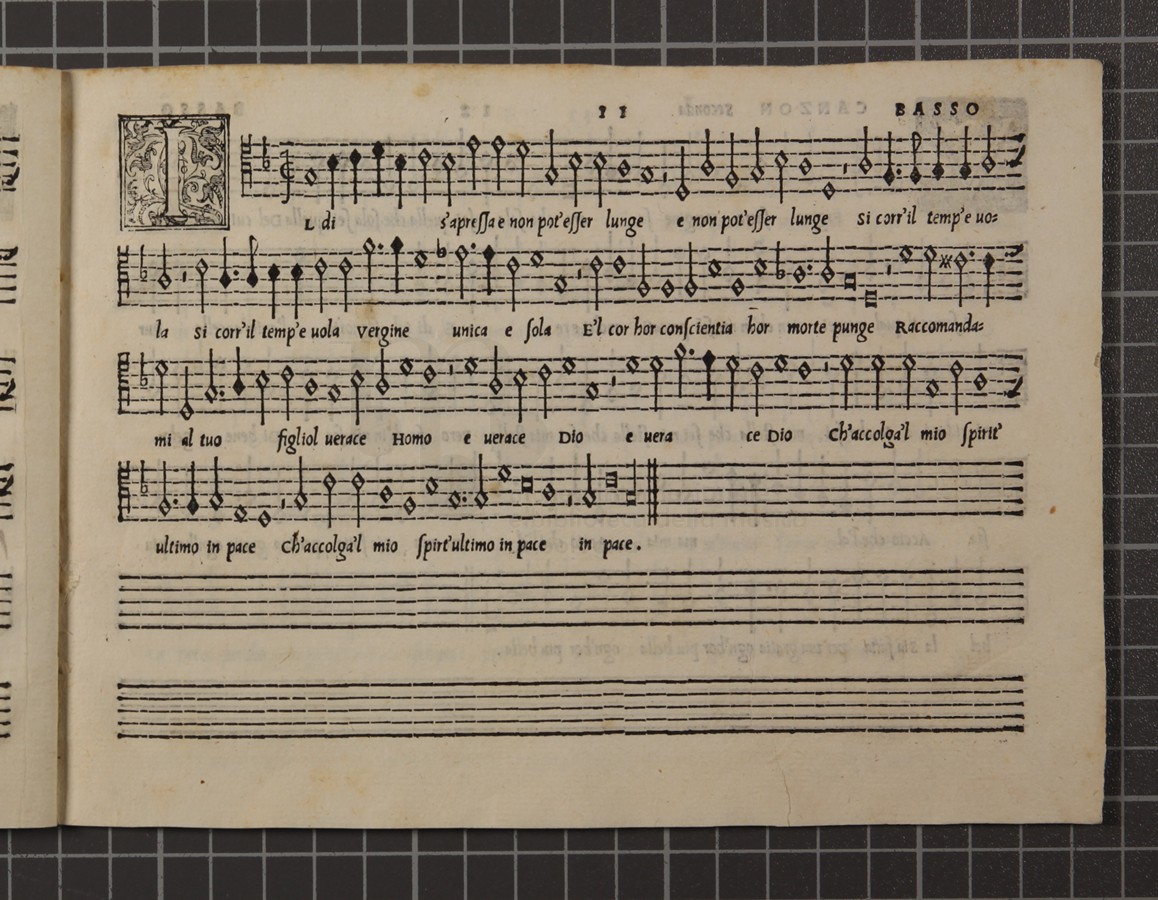 11 BASSO
IL di s'apressa e non pot'esser lunge e non pot'esser lunge si corr'il temp'e uo=
la si corr'il temp'e uola Vergine unica e sola E'l cor hor conscientia hor morte punge Raccomanda=
mi al tuo figliol uerace Homo e uerace Dio e uera ce Dio Ch'accolga'l mio spirit'
ultimo in pace Ch'accolga'l mio spirt'ultimo in pace in pace.